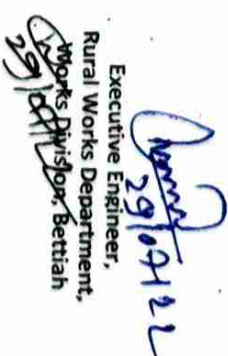 29/07/22
Executive Engineer,
Rural Works Department,
Works Division, Bettiah
29/07/22